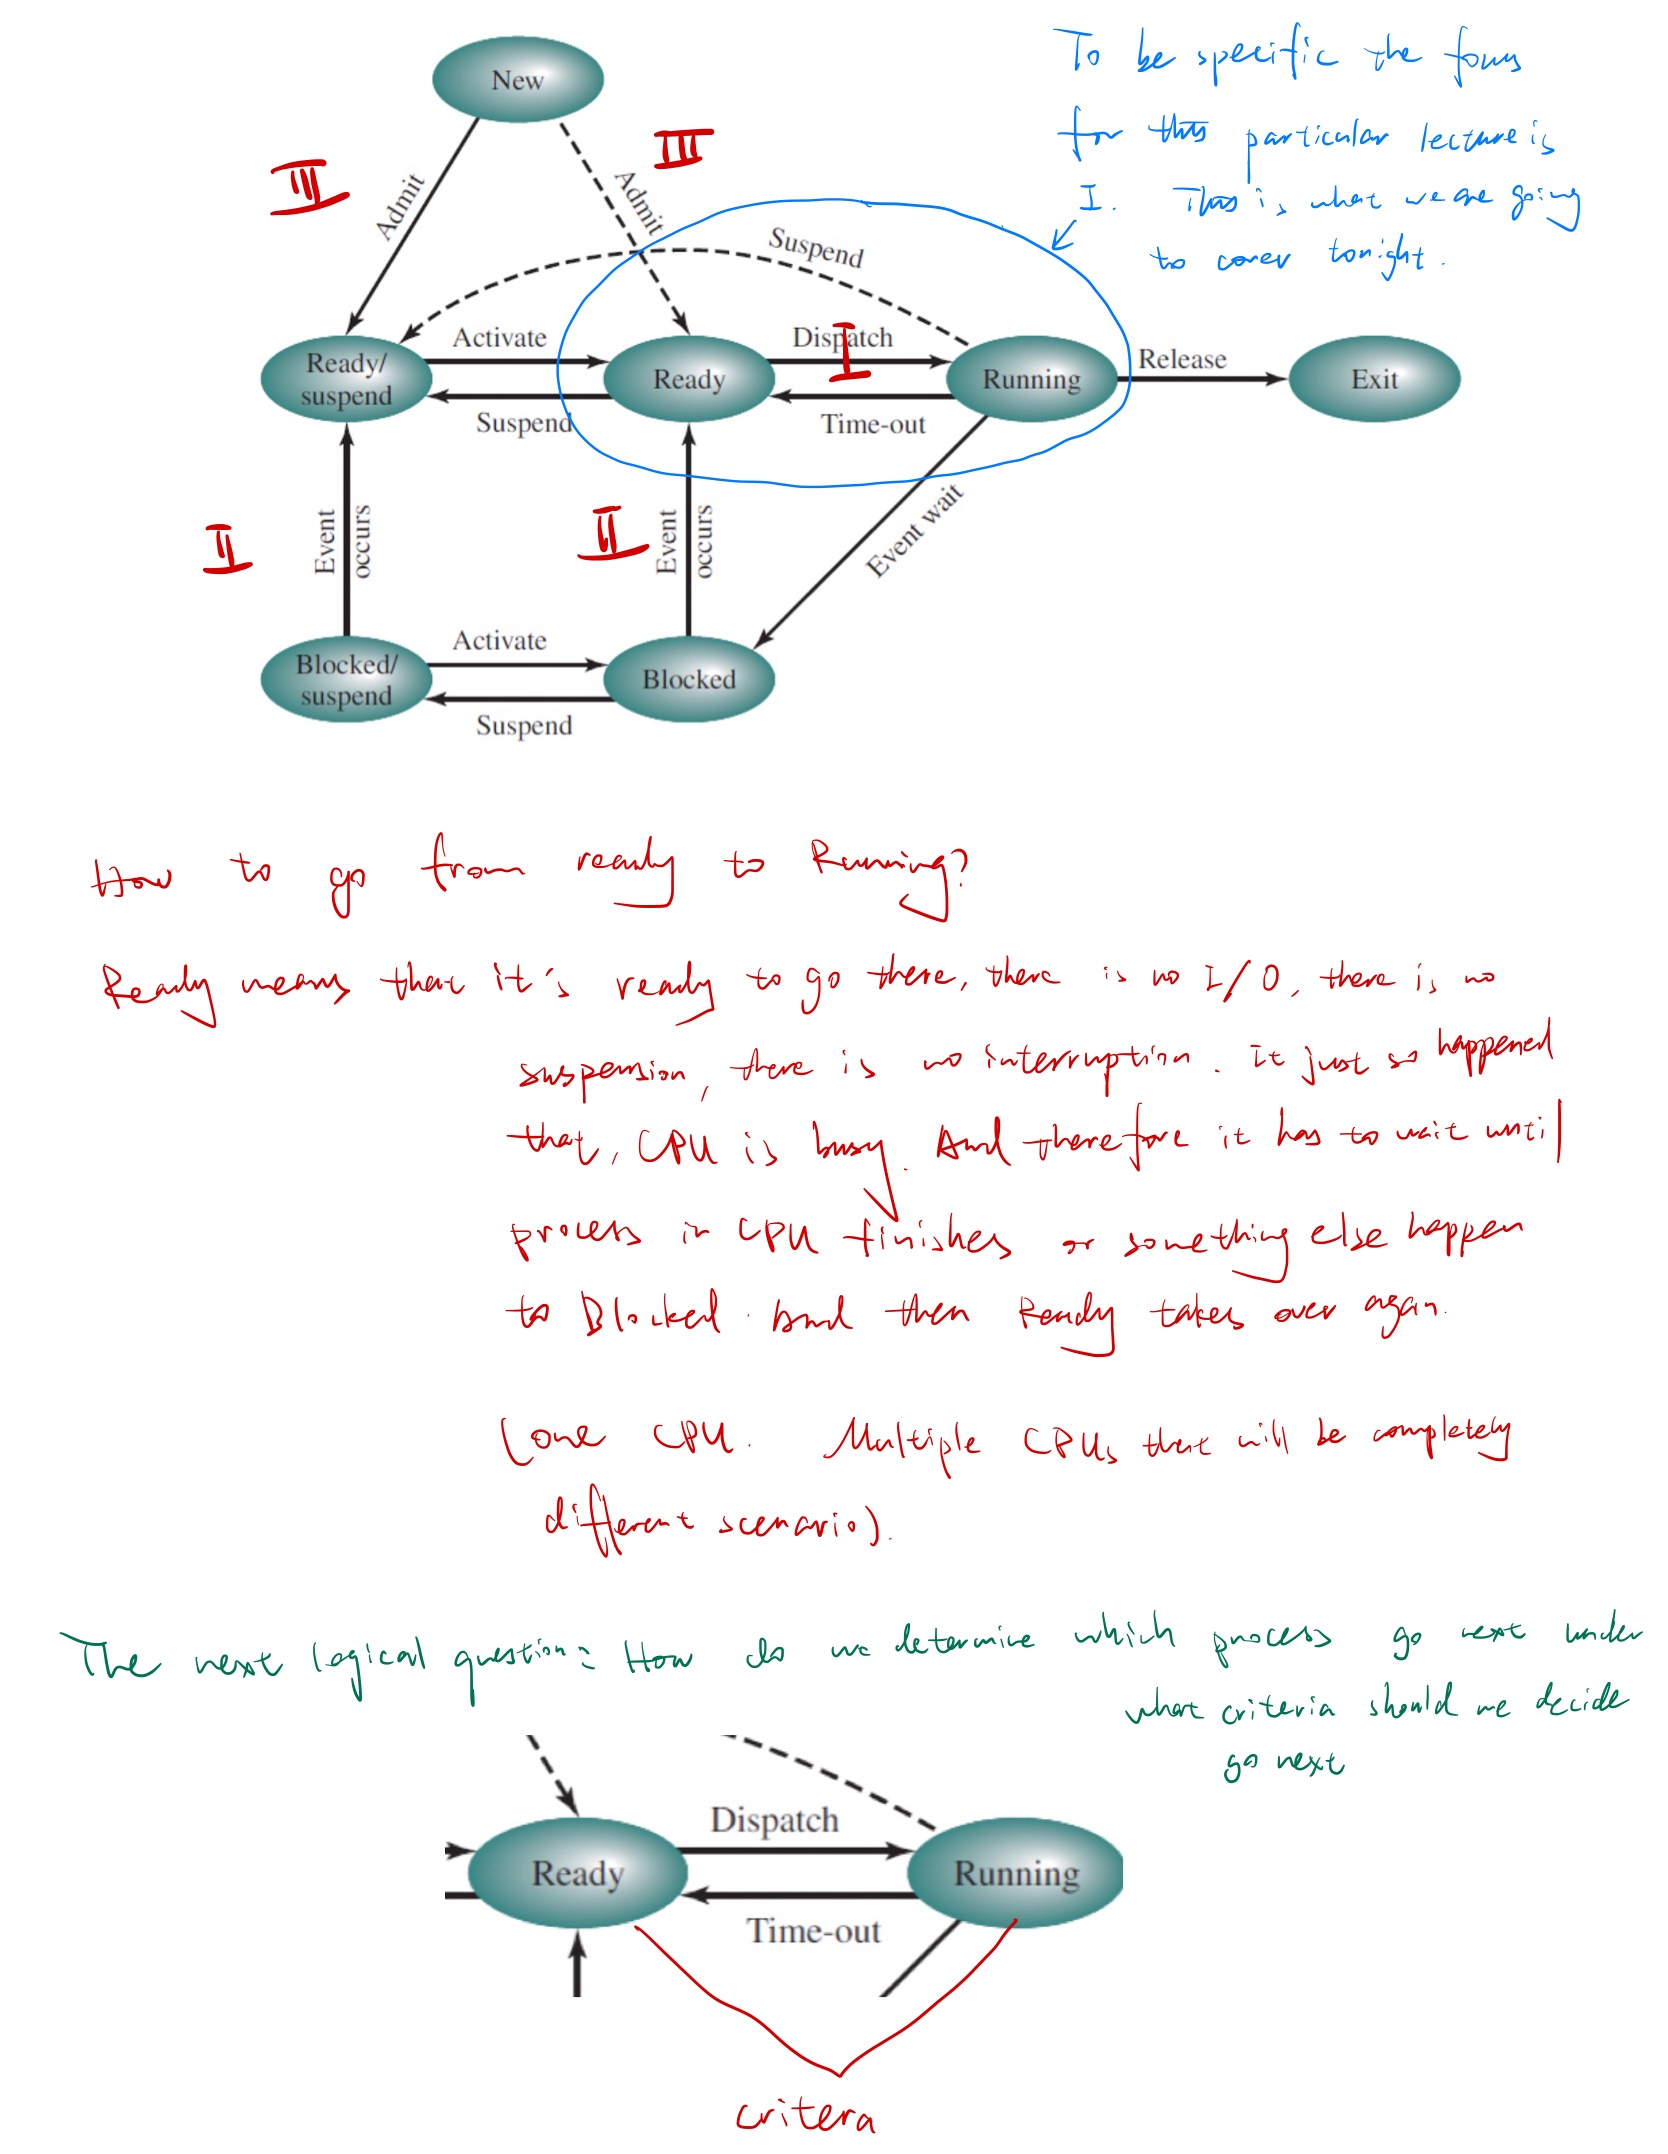 New
To be specific the focus
for this particular lecture is
I. This is what we are going
to cover tonight.
III
III
Admit
Admit
Suspend
Ready/
suspend
Activate
Suspend
Ready
Dispatch
I
Time-out
Running
Release
Exit
II
Event
occurs
II
Event
occurs
Event wait
Blocked/
suspend
Activate
Suspend
Blocked
How to go from ready to Running?
Ready means that it's ready to go there, there is no I/O, there is no
suspension, there is no interruption. it just so happened
that, CPU is busy. And therefore it has to wait until
process in CPU finishes or something else happen
to Blocked. And then Ready takes over again.
(one CPU. Multiple CPUs that will be completely
different scenario).
The next logical question: How do we determine which process go next under
what criteria should we decide
go next
Ready
Dispatch
Time-out
Running
critera